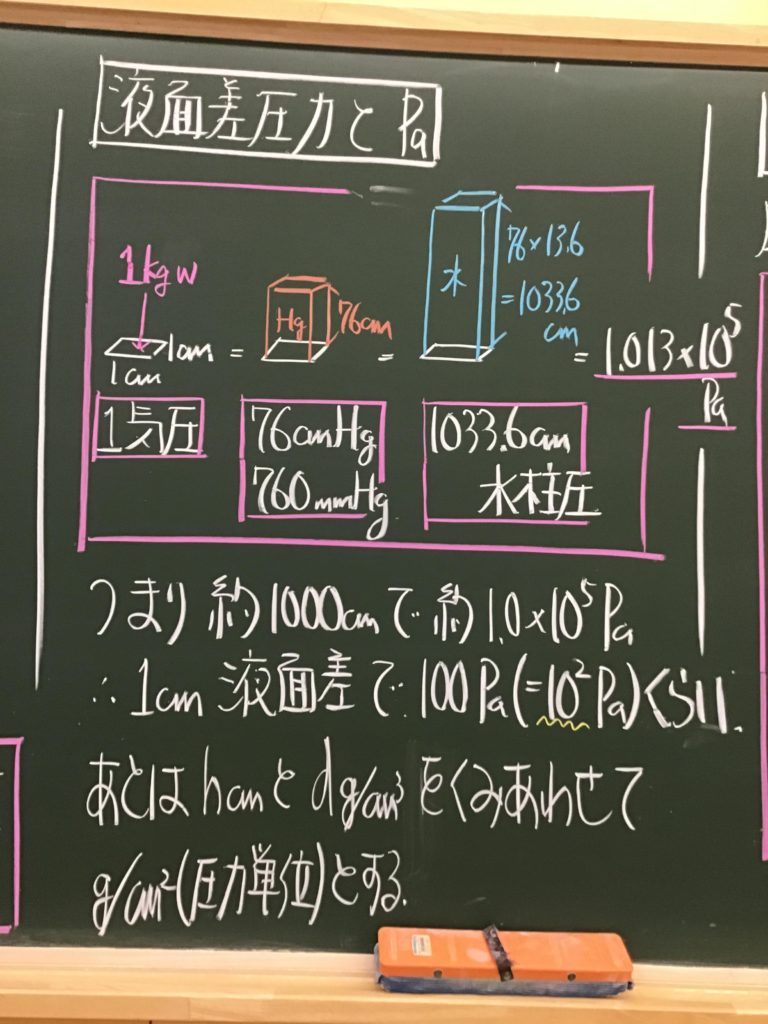 液面差圧力と Pa
1kgw
1cm
1cm
=
Hg
76cm
=
水
76×13.6
=1033.6
cm
= 1.013×10⁵
Pa
1気圧
76cmHg
760mmHg
1033.6cm
水柱圧
つまり 約1000cmで 約1.0×10⁵Pa
∴1cm 液面差で 100Pa(=10²Pa)くらい.
あとは hcmと dg/cm³をくみあわせて
g/cm²(圧力単位)とする.